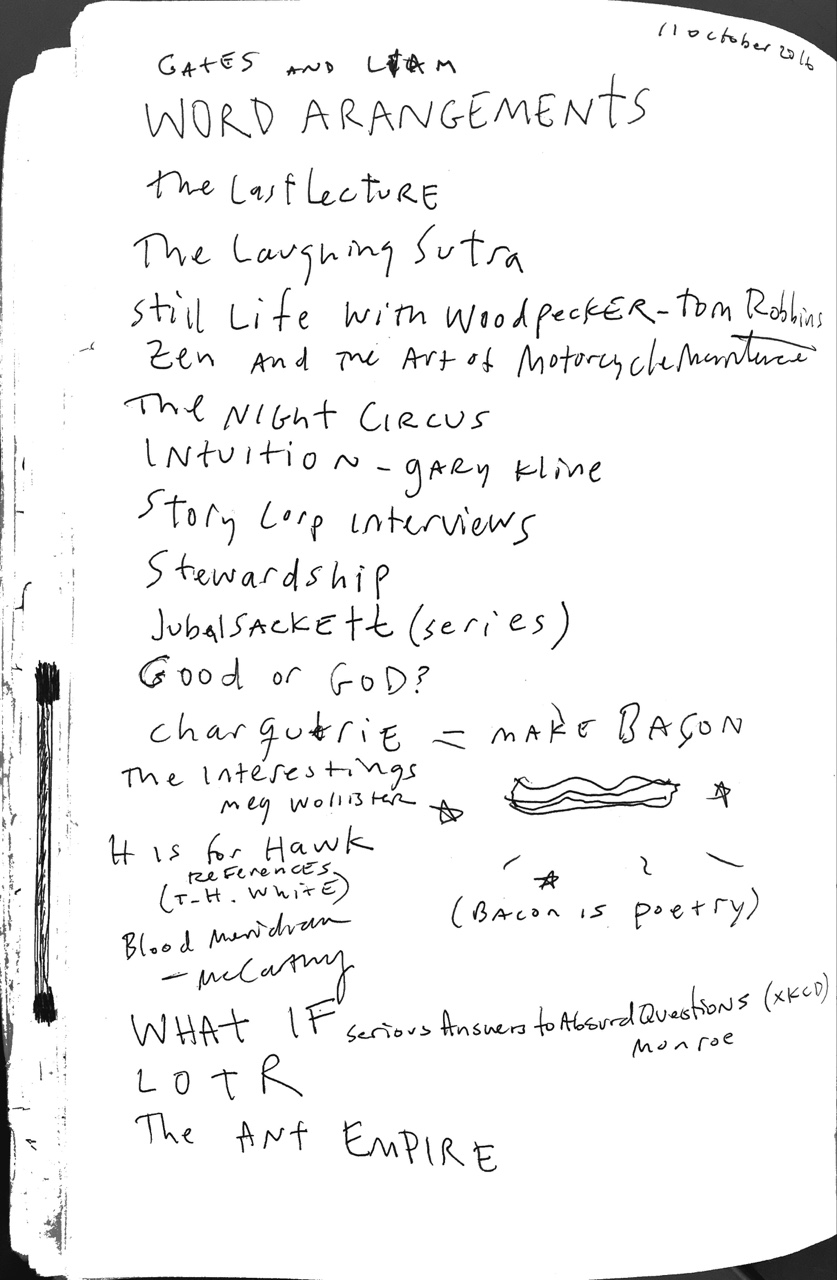 11 October 2016
GATES AND LIAM
WORD ARANGEMENTS
The Last LectURE
The Laughing Sutra
Still Life with WoodpeckER - Tom Robbins
Zen And the Art of Motorcycle
The NIGHT CIRCUS
INTUITION - gARy Kline
Story Corp interviews
Stewardship
JubalSACKEtt (series)
Good or GOD?
charqutriE = MAKE BACON
The Interestings
meg wollister
H is for Hawk
REFERENCES
(T-H. WhitE)
Blood Meridian
- McCarthy
WHAT IF serious Answers to Absurd Questions (XKCD)
Monroe
(BAcon is poetry)
LOTR
The ANT EMPIRE